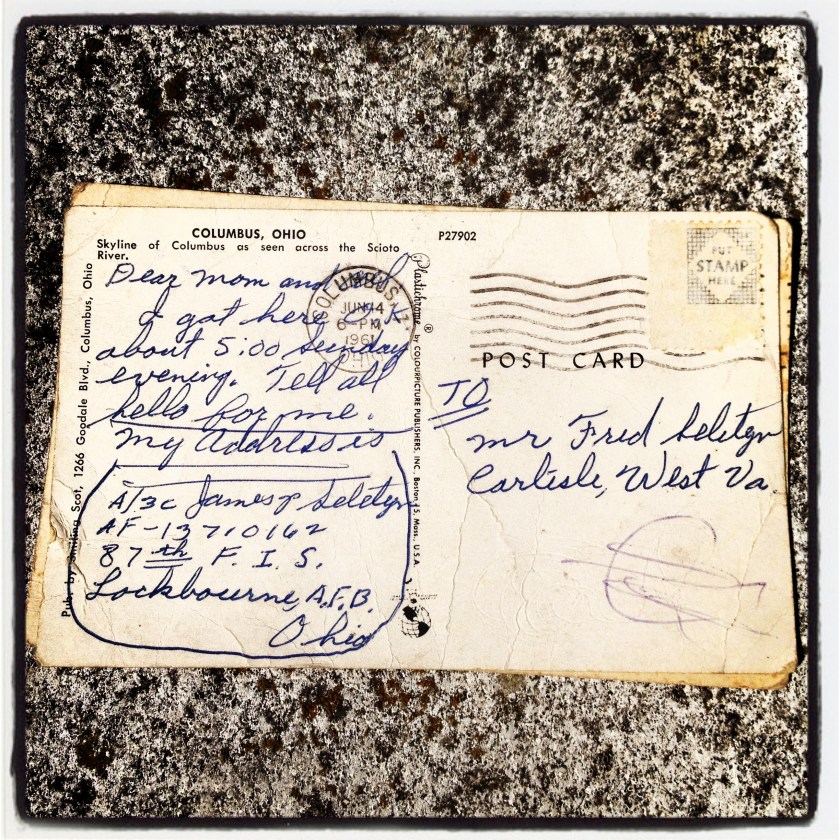 COLUMBUS, OHIO
Skyline of Columbus as seen across the Scioto
River.
P27902
Dear Mom and
I got here O.K.
about 5:00 Sunday
evening. Tell all
hello for me.
My Address is
A/3c James P Seletyn
AF-13710162
87th F. I. S.
Lockbourne, A.F.B.
Ohio
COLUMBUS
JUN 4
6-PM
1961
OHIO
PUT
STAMP
HERE
POST CARD
TO
Mr Fred Seletyn
Carlisle, West Va.
Plastichrome ® by COLOURPICTURE PUBLISHERS, INC. Boston 15, Mass., U.S.A.
Pub. by Scot, 1266 Goodale Blvd., Columbus, Ohio